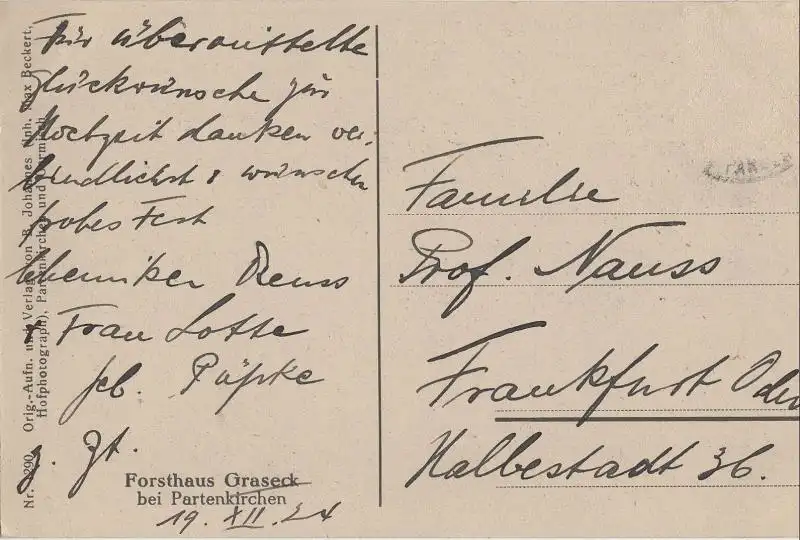 Für übermittelte
Glückwünsche zur
Hochzeit danken ver-
bindlichst & wünschen
frohes Fest
Chemiker Reuss
& Frau Lotte
geb. Päpke
z. Zt.
Forsthaus Graseck
bei Partenkirchen
19. XII. 24
Familie
Prof. Nauss
Frankfurt Oder
Halbestadt 36.
Nr. 290 Orig.-Aufn. und Verlag von B. Johannes (Inh. Max Beckert,
Hofphotograph), Partenkirchen und Garmisch